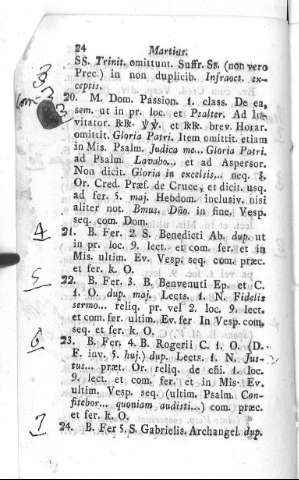 24 Martius.
SS. Trinit. omittunt. Suffr. Ss. (non vero
Prec.) in non duplicib. Infraoct. ex-
ceptis.
20. M. Dom. Passion. 1. class. De ea,
sem. ut in pr. loc. et Psalter. Ad In-
vitator. RR. ℣℣. et RR. brev. Horar.
omittit. Gloria Patri. Item omittit. etiam
in Mis. Psalm. Judica me... Gloria Patri.
ad Psalm. Lavabo... et ad Aspersor.
Non dicit. Gloria in excelsis... neq. 3.
Or. Cred. Præf. de Cruce, et dicit. usq.
ad fer. 5. maj. Hebdom. inclusiv. nisi
aliter not. Bmus. Dño. in fine. Vesp.
seq. com. Dom.
4
21. B. Fer. 2. S. Benedicti Ab. dup. ut
in pr. loc. 9. lect. et com. fer. et in
Mis. ultim. Ev. Vesp. seq. com. præc.
et fer. k. O.
5
22. B. Fer. 3. B. Benvenuti Ep. et C.
1. O. dup. maj. Lects. 1. N. Fidelis
sermo... reliq. pr. vel 2. loc. 9. lect.
et com. fer. ultim. Ev. fer In Vesp. com.
seq. et fer. k. O.
6
23. B. Fer. 4. B. Rogerii C. 1. O. (D.
F. inv. 5. huj.) dup. Lects. 1. N. Jus-
tus... præt. Or. reliq. de cñi. 1. loc.
9. lect. et com. fer. et in Mis. Ev.
ultim. Vesp. seq. (ultim. Psalm. Con-
fitebor... quoniam audisti...) com. præc.
et fer. k. O.
7
24. B. Fer 5. S. Gabrielis. Archangel. dup.